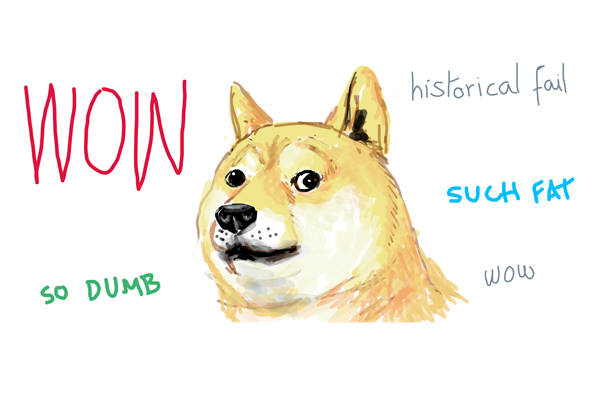 WOW
historical fail
SUCH FAT
SO DUMB
wow